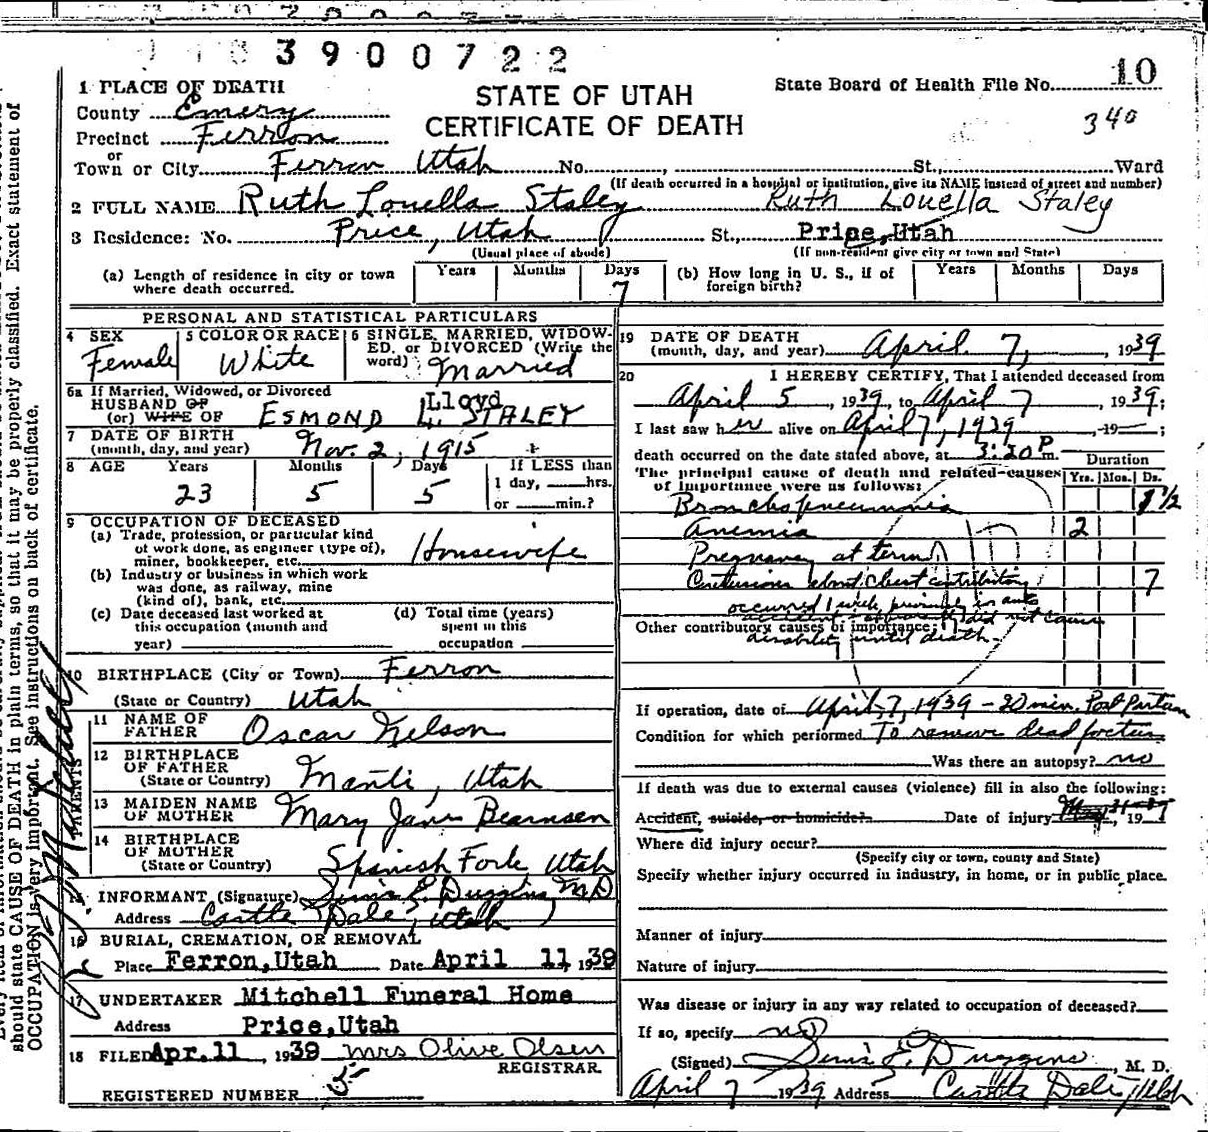 3900722
1 PLACE OF DEATH
STATE OF UTAH
CERTIFICATE OF DEATH
State Board of Health File No. 10
340
County Emery
Precinct Ferron
or
Town or City Ferron Utah No. , St., Ward
(If death occurred in a hospital or institution, give its NAME instead of street and number)
2 FULL NAME Ruth Louella Staley Ruth Louella Staley
3 Residence: No. Price, Utah St., Price, Utah
(Usual place of abode) (If non-resident give city or town and State)
(a) Length of residence in city or town where death occurred. Years Months Days 7
(b) How long in U. S., if of foreign birth? Years Months Days
PERSONAL AND STATISTICAL PARTICULARS
4 SEX Female
5 COLOR OR RACE White
6 SINGLE, MARRIED, WIDOWED, or DIVORCED (Write the word) Married
6a If Married, Widowed, or Divorced
HUSBAND OF
(or) WIFE OF ESMOND L. STALEY
Lloyd
7 DATE OF BIRTH
(month, day, and year) Nov. 2, 1915
8 AGE Years 23 Months 5 Days 5 If LESS than 1 day, hrs. or min.?
9 OCCUPATION OF DECEASED
(a) Trade, profession, or particular kind
of work done, as engineer (type of),
miner, bookkeeper, etc. Housewife
(b) Industry or business in which work
was done, as railway, mine
(kind of), bank, etc.
(c) Date deceased last worked at
this occupation (month and
year)
(d) Total time (years)
spent in this
occupation
10 BIRTHPLACE (City or Town) Ferron
(State or Country) Utah
PARENTS
11 NAME OF FATHER Oscar Nelson
12 BIRTHPLACE OF FATHER
(State or Country) Manti, Utah
13 MAIDEN NAME OF MOTHER Mary Jane
14 BIRTHPLACE OF MOTHER
(State or Country) Spanish Fork Utah
INFORMANT (Signature) Duggins, M.D
Address Castle Dale, Utah
16 BURIAL, CREMATION, OR REMOVAL
Place Ferron, Utah Date April 11, 1939
17 UNDERTAKER Mitchell Funeral Home
Address Price, Utah
18 FILED Apr. 11, 1939 Mrs Olive Olsen
REGISTRAR.
REGISTERED NUMBER 5
19 DATE OF DEATH
(month, day, and year) April 7, , 1939
20 I HEREBY CERTIFY, That I attended deceased from
April 5, 1939, to April 7, 1939;
I last saw her alive on April 7, 1939, 19 ;
death occurred on the date stated above, at 3:20 P m.
The principal cause of death and related causes
of importance were as follows:
Duration
Yrs. Mos. Ds.
Bronchopneumonia 1 1/2
Anemia 2
Pregnancy at term
Contusions about chest contributing 7
occurred 1 week previous in auto
accident - apparently did not cause
disability until death -
Other contributory causes of importance:
If operation, date of April 7, 1939 - 20 min. Post Partum
Condition for which performed To remove dead foetus
Was there an autopsy? no
If death was due to external causes (violence) fill in also the following:
Accident, suicide, or homicide? Date of injury , 19
Where did injury occur?
(Specify city or town, county and State)
Specify whether injury occurred in industry, in home, or in public place.
Manner of injury
Nature of injury
Was disease or injury in any way related to occupation of deceased?
If so, specify no
(Signed) Duggins, M. D.
April 7 1939 Address Castle Dale, Utah
should state CAUSE OF DEATH in plain terms, so that it may be properly classified. Exact statement of
OCCUPATION is very important. See instructions on back of certificate.